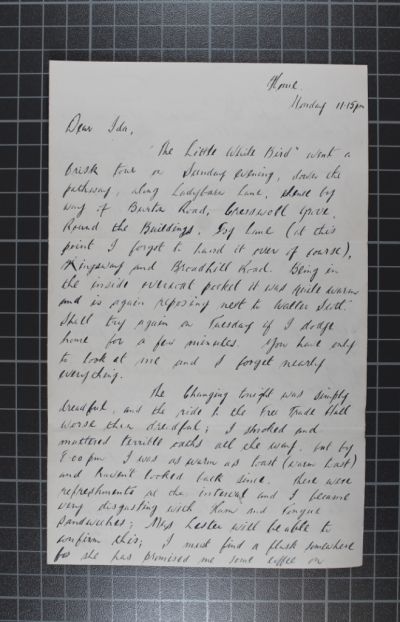 Home.
Monday 11.15pm
Dear Ida,
"The Little White Bird" went a
brisk tour on Sunday evening, down the
pathway, along Ladybarn Lane, thence by
way of Burton Road, Cresswell Grove,
Round the Buildings, Fog Lane (at this
point I forgot to hand it over of course),
Kingsway and Broadhill Road. Being in
the inside overcoat pocket it was quite warm
and is again reposing next to Walter Scott.
Shall try again on Tuesday if I dodge
home for a few minutes. You have only
to look at me and I forget nearly
everything.
The Changing tonight was simply
dreadful, and the ride to the Free Trade Hall
worse than dreadful; I shocked and
muttered terrible oaths all the way, but by
8.00 pm I was as warm as toast (warm toast)
and haven't looked back since. There were
refreshments at the interval and I became
very disgusting with Ham and Tongue
Sandwiches; Miss Lester will be able to
confirm this; I must find a flask somewhere
for she has promised me some coffee on